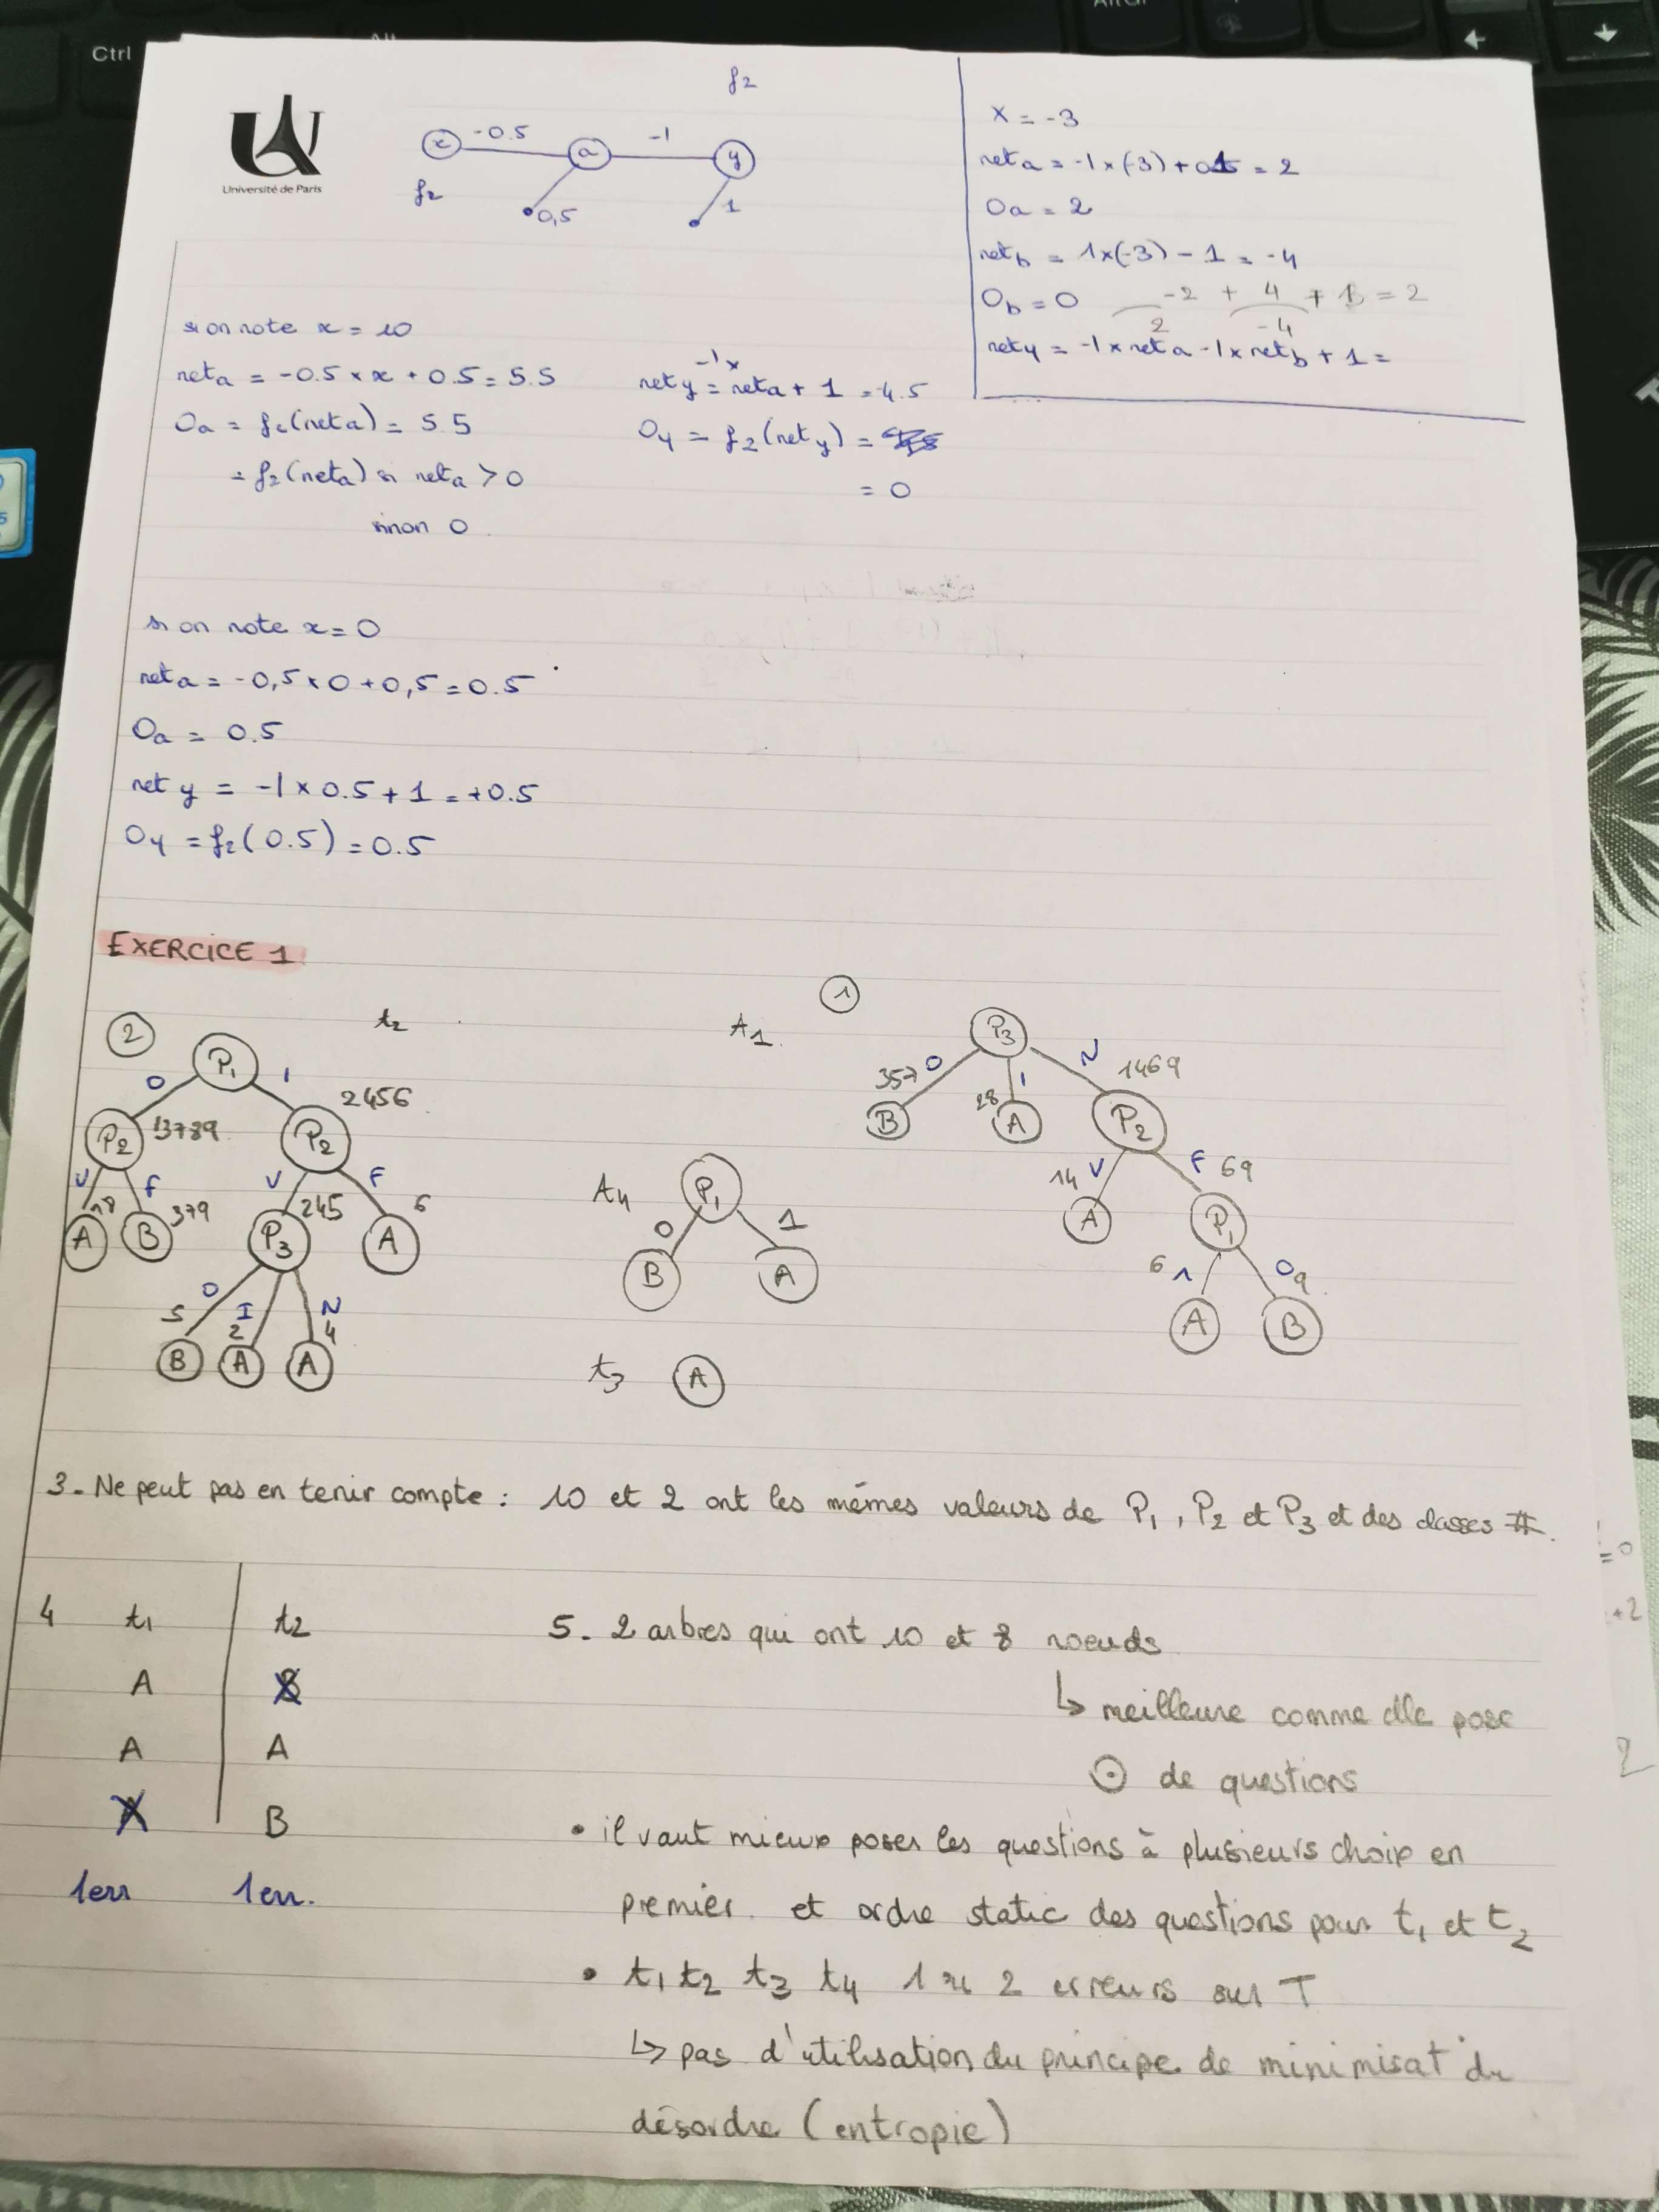 Ctrl
Université de Paris
f2
x
-0.5
a
-1
y
f2
0,5
1
X = -3
net a = -1 x (-3) + 1 = 2
Oa = 2
net b = 1x(-3) - 1 = -4
Ob = 0
-2 + 4 + 1 = 2
2
-4
net y = -1 x net a - 1 x net b + 1 =
si on note x = 10
net a = -0.5 x x + 0.5 = 5.5
Oa = f2(net a) = 5.5
= f2(net a) si net a > 0
sinon 0
-1 x
net y = net a + 1 = -4.5
Oy = f2(net y) =
= 0
si on note x = 0
net a = -0,5 x 0 + 0,5 = 0.5
Oa = 0.5
net y = -1 x 0.5 + 1 = +0.5
Oy = f2(0.5) = 0.5
EXERCICE 1
2
t2
P1
0
1
2456
P2
13789
P2
V
F
18
379
A
B
V
F
245
6
P3
A
O
I
N
5
2
4
B
A
A
A4
P1
0
1
B
A
t3
A
1
A1
P3
357
O
28
I
N
1469
B
A
P2
14
V
F
69
A
P1
6
1
0
9
A
B
3- Ne peut pas en tenir compte : 10 et 2 ont les mêmes valeurs de P1, P2 et P3 et des classes ≠.
4
t1
t2
A
A
A
B
1err
1err.
5- 2 arbres qui ont 10 et 8 noeuds
↳ meilleure comme elle pose
⊖ de questions
• il vaut mieux poser les questions à plusieurs choix en
premier. et ordre static des questions pour t1 et t2
• t1 t2 t3 t4 1 ou 2 erreurs sur T
↳ pas d'utilisation du principe de minimisat° du
désordre (entropie)
=0
+2
2